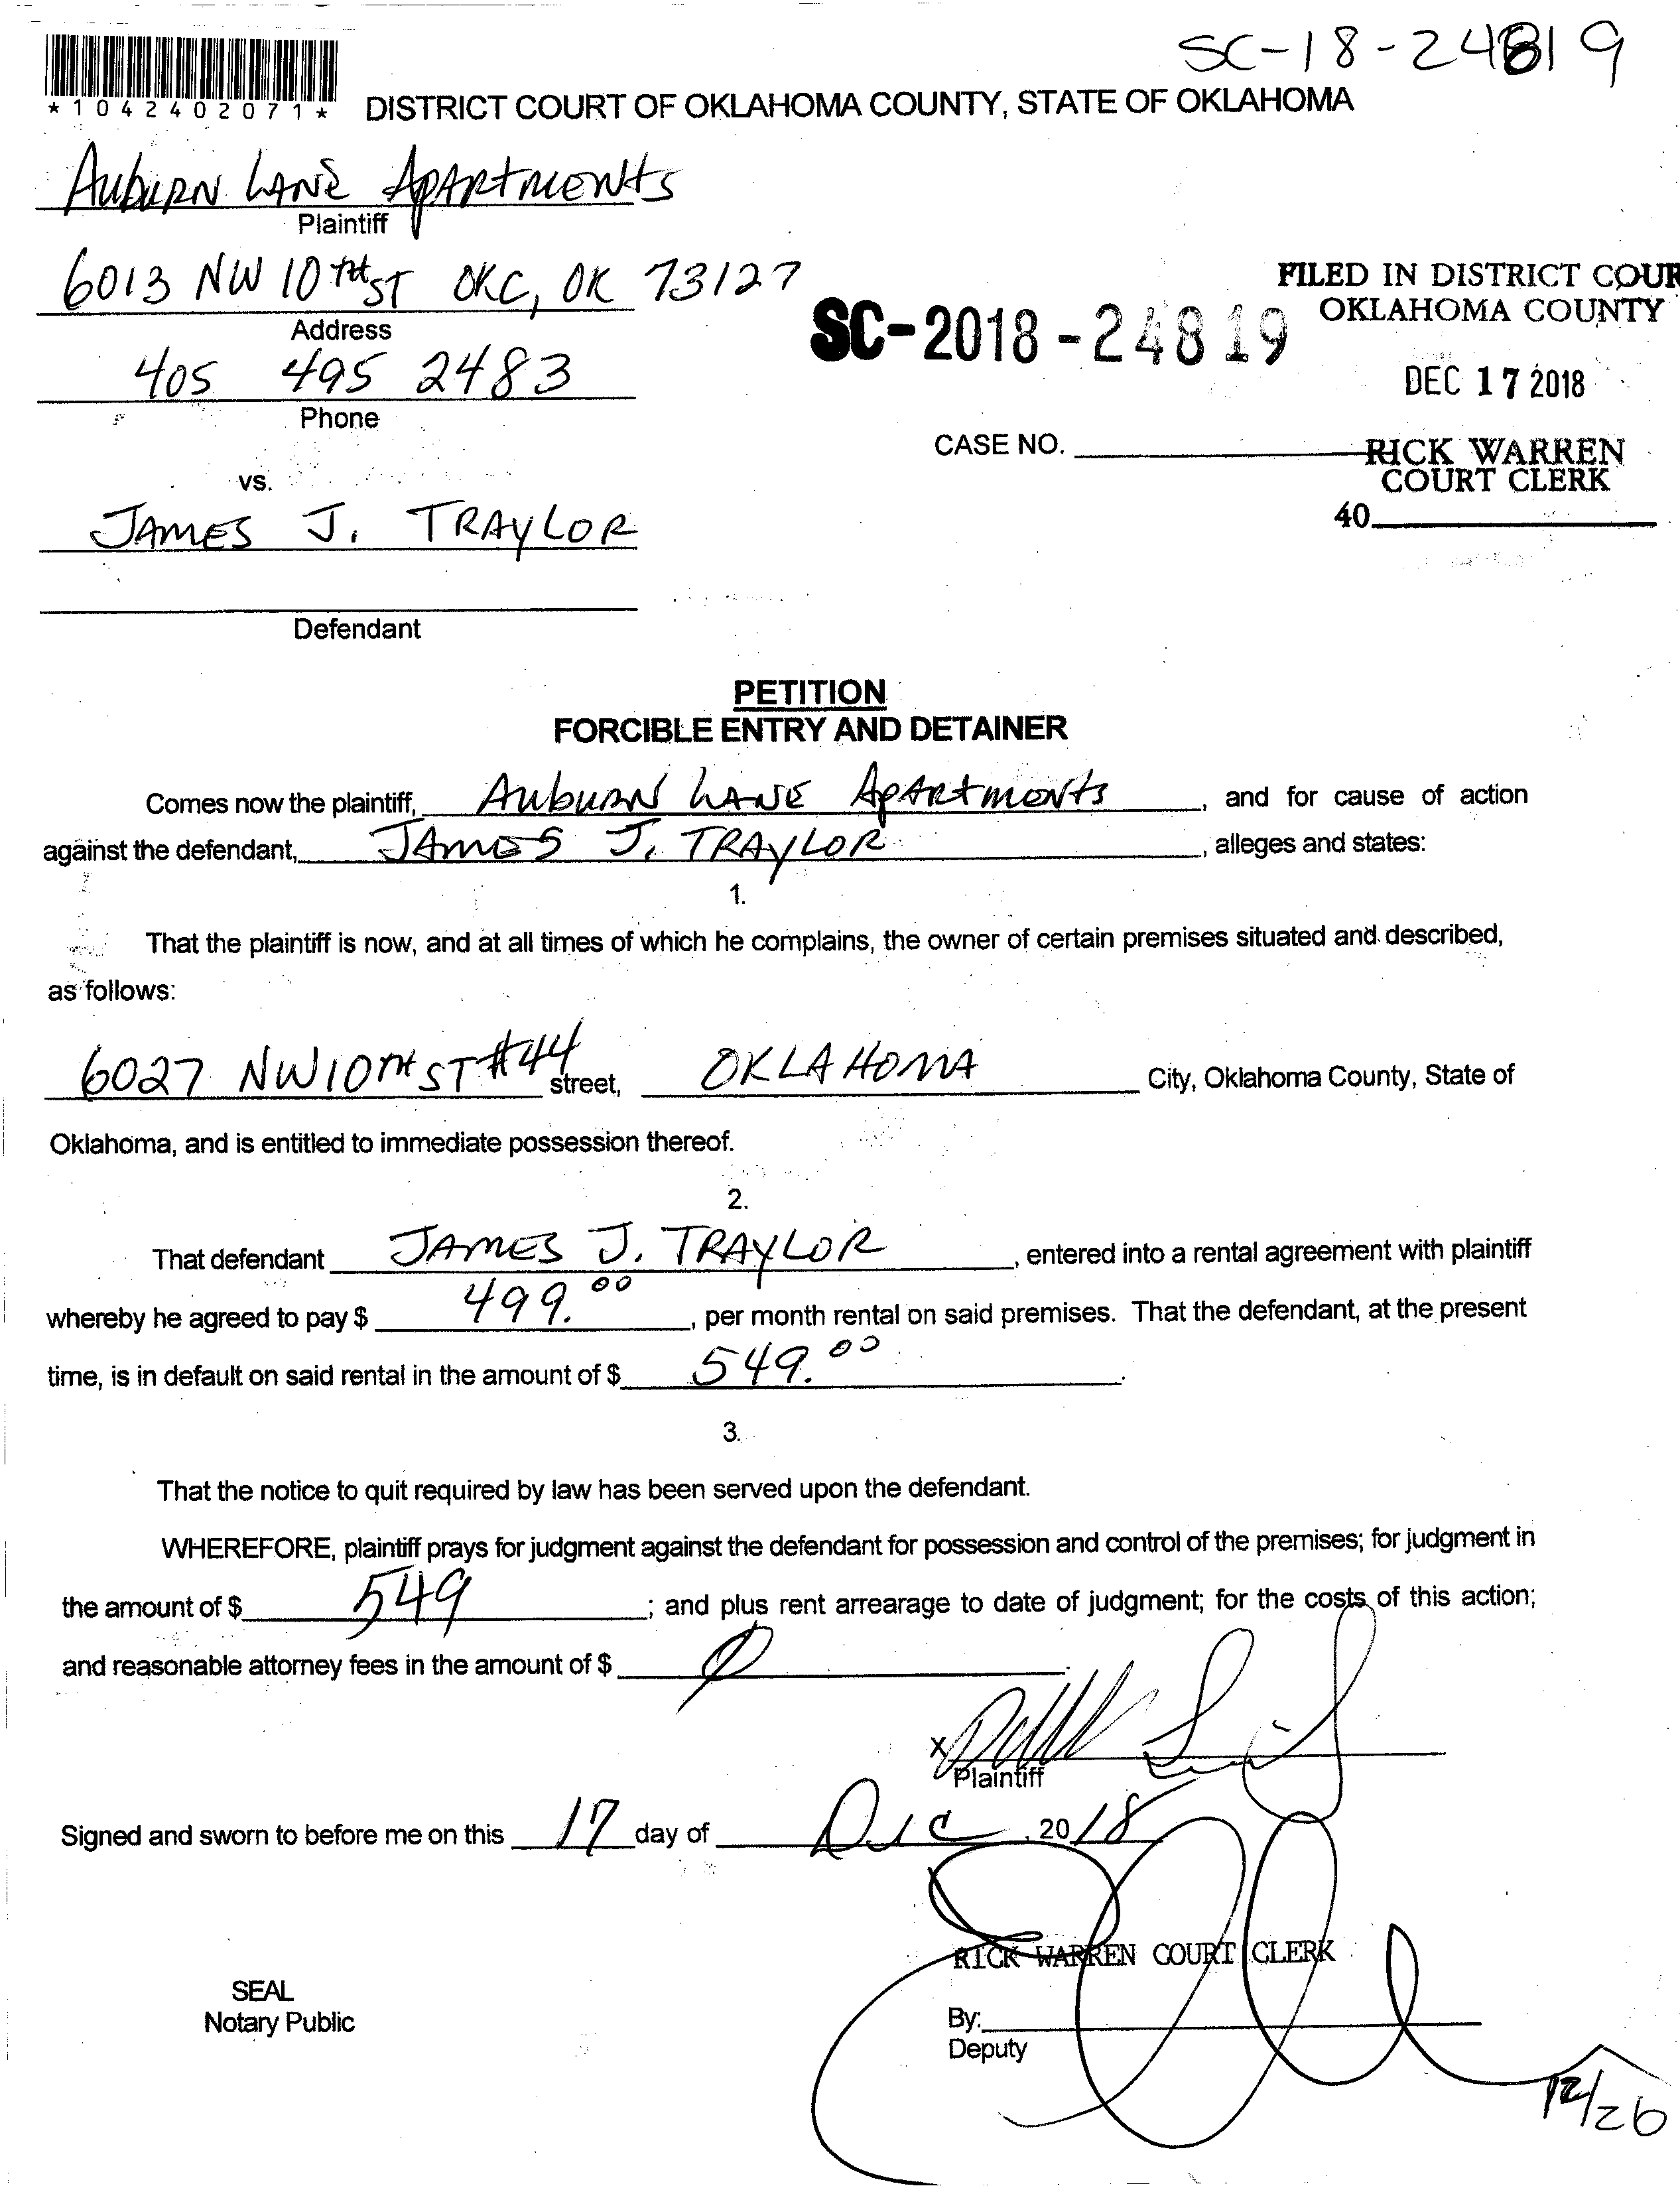 SC-18-24819
*1042402071*
DISTRICT COURT OF OKLAHOMA COUNTY, STATE OF OKLAHOMA
AUBURN LANE APARTMENTS
Plaintiff
6013 NW 10TH ST OKC, OK 73127
Address
FILED IN DISTRICT COUR
OKLAHOMA COUNTY
SC-2018-24819
DEC 17 2018
405 495 2483
Phone
CASE NO.
RICK WARREN
COURT CLERK
40
vs.
JAMES J. TRAYLOR
Defendant
PETITION
FORCIBLE ENTRY AND DETAINER
Comes now the plaintiff, AUBURN LANE APARTMENTS, and for cause of action
against the defendant, JAMES J. TRAYLOR, alleges and states:
1.
That the plaintiff is now, and at all times of which he complains, the owner of certain premises situated and described,
as follows:
6027 NW 10TH ST #44 street, OKLAHOMA City, Oklahoma County, State of
Oklahoma, and is entitled to immediate possession thereof.
2.
That defendant JAMES J. TRAYLOR, entered into a rental agreement with plaintiff
whereby he agreed to pay $ 499.00, per month rental on said premises. That the defendant, at the present
time, is in default on said rental in the amount of $ 549.00.
3.
That the notice to quit required by law has been served upon the defendant.
WHEREFORE, plaintiff prays for judgment against the defendant for possession and control of the premises; for judgment in
the amount of $ 549; and plus rent arrearage to date of judgment; for the costs of this action;
and reasonable attorney fees in the amount of $ 0.
X
Plaintiff
Signed and sworn to before me on this 17 day of Dec, 2018
RICK WARREN COURT CLERK
SEAL
Notary Public
By:
Deputy
12/26